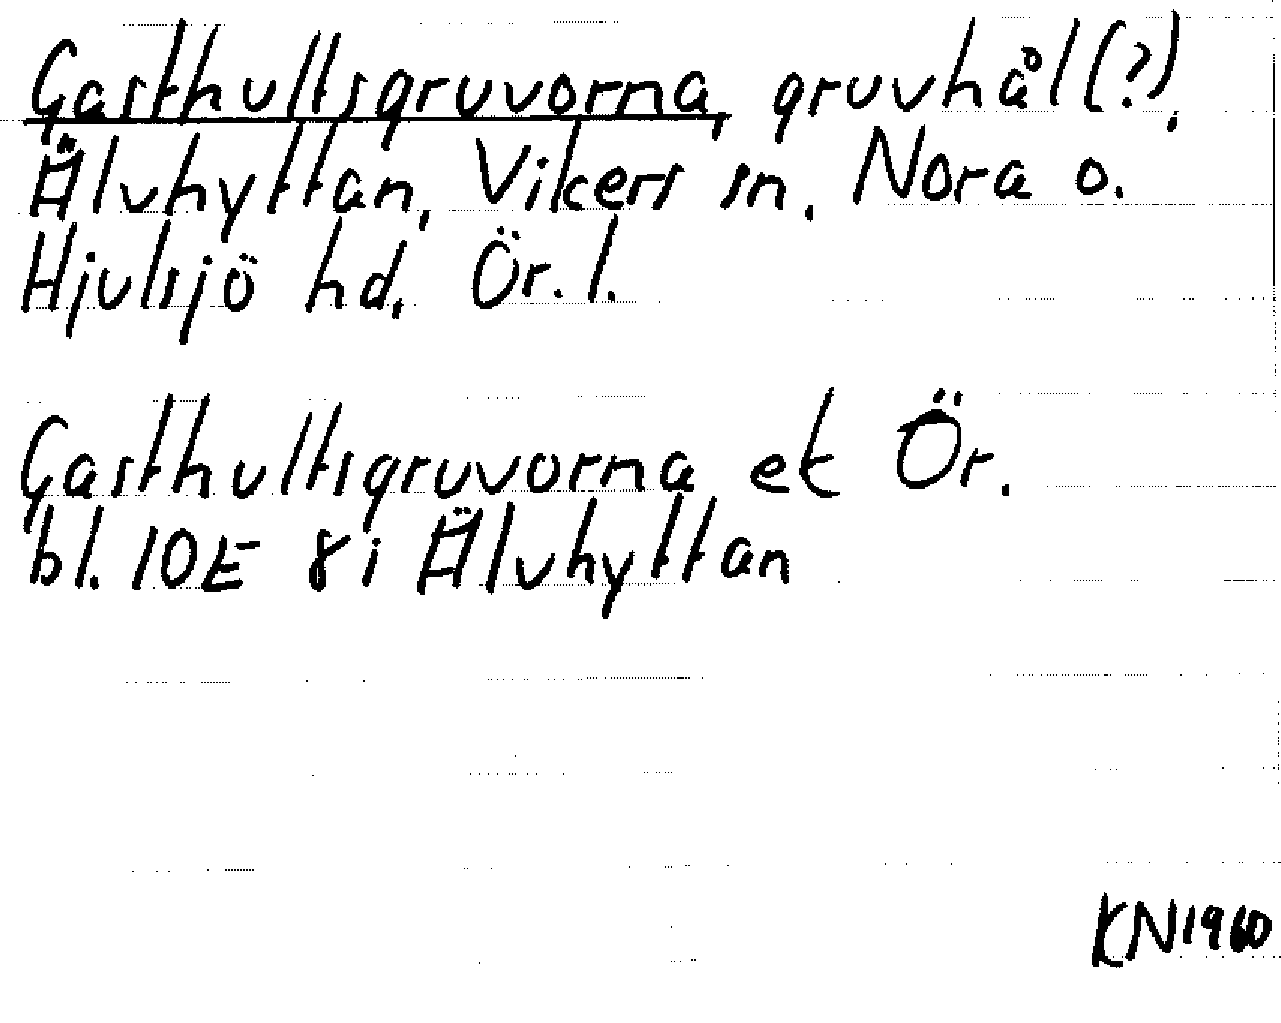 Gasthultsgruvorna, gruvhål(?),
Älvhyttan, Vikers sn, Nora o.
Hjulsjö hd, Ör. l.
Gasthultsgruvorna ek Ör.
bl. 10E 8i Älvhyttan
KN1960